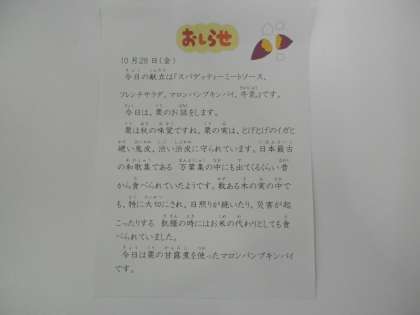 おしらせ
10月28日(金)
今日の献立は「スパゲッティーミートソース、
フレンチサラダ、マロンパンプキンパイ、牛乳」です。
今日は、栗のお話をします。
栗は秋の味覚ですね。栗の実は、とげとげのイガと
硬い鬼皮、渋い渋皮に守られています。日本最古
の和歌集である 万葉集の中にも出てくるくらい昔
から食べられていたようです。数ある木の実の中で
も、特に大切にされ、日照りが続いたり、災害が起
こったりする 飢饉の時にはお米の代わりとしても食
べられていました。
今日は栗の甘露煮を使ったマロンパンプキンパイ
です。